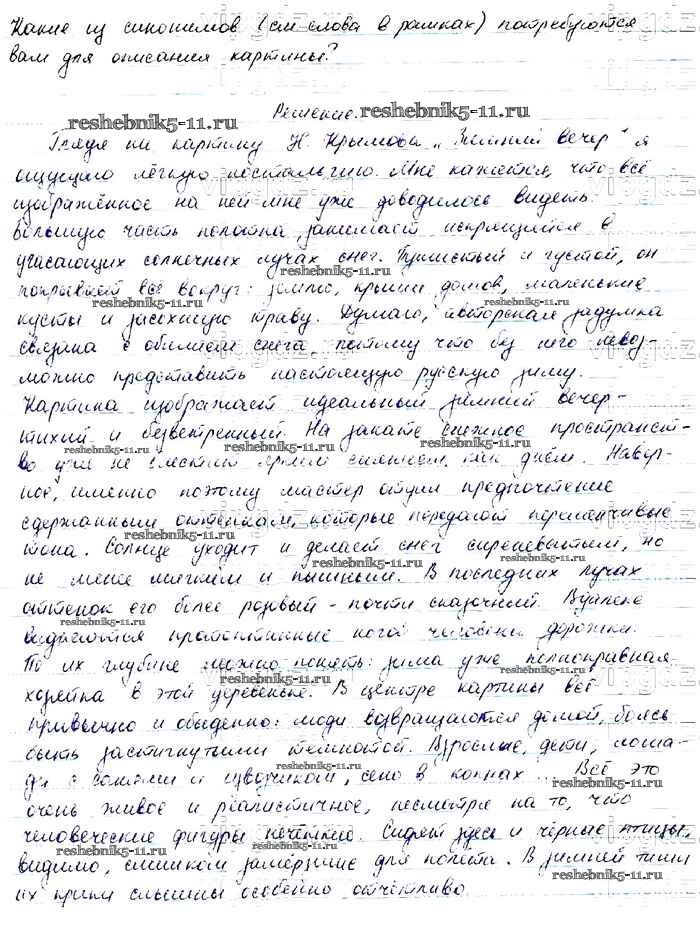 Какие из синонимов (см слова в рамках) потребуются
вам для описания картины?
Решение.
reshebnik5-11.ru
reshebnik5-11.ru
Глядя на картину Н. Крымова „Зимний вечер" я
ощущаю лёгкую ностальгию. Мне кажется, что всё
изображённое на ней мне уже доводилось видеть.
Большую часть полотна занимает искрящийся в
угасающих солнечных лучах снег. Пушистый и густой, он
reshebnik5-11.ru
покрывает всё вокруг: землю, крыши домов, маленькие
reshebnik5-11.ru reshebnik5-11.ru
кусты и засохшую траву. Думаю, авторская задумка
связана с обилием снега, потому что без него невоз-
можно представить настоящую русскую зиму.
Картина изображает идеальный зимний вечер-
тихий и безветренный. На закате снежное пространст-
reshebnik5-11.ru reshebnik5-11.ru reshebnik5-11.ru
во уже не блестит ярким сиянием, как днём. Навер-
ное, именно поэтому мастер отдал предпочтение
сдержанным оттенкам, которые передают переменчивые
reshebnik5-11.ru
тона. Солнце уходит и делает снег сиреневатым, но
reshebnik5-11.ru
не менее мягким и пышным. В последних лучах
оттенок его более розовый - почти сказочный. Вдалеке
reshebnik5-11.ru reshebnik5-11.ru
виднеются протоптанные ногой человека дорожки.
По их глубине можно понять: зима уже полноправная
reshebnik5-11.ru
хозяйка в этой деревеньке. В центре картины всё
привычно и обыденно: люди возвращаются домой, боясь
быть застигнутыми темнотой. Взрослые, дети, лоша-
reshebnik5-11.ru
ди с санями и извозчиком, сено в копнах ... Всё это
reshebnik5-11.ru
очень живое и реалистичное, несмотря на то, что
человеческие фигуры нечёткие. Сидят здесь и чёрные птицы,
reshebnik5-11.ru reshebnik5-11.ru
видимо, слишком замёрзшие для полёта. В зимней тиши
их крики слышны особенно отчётливо.
reshebnik5-11.ru